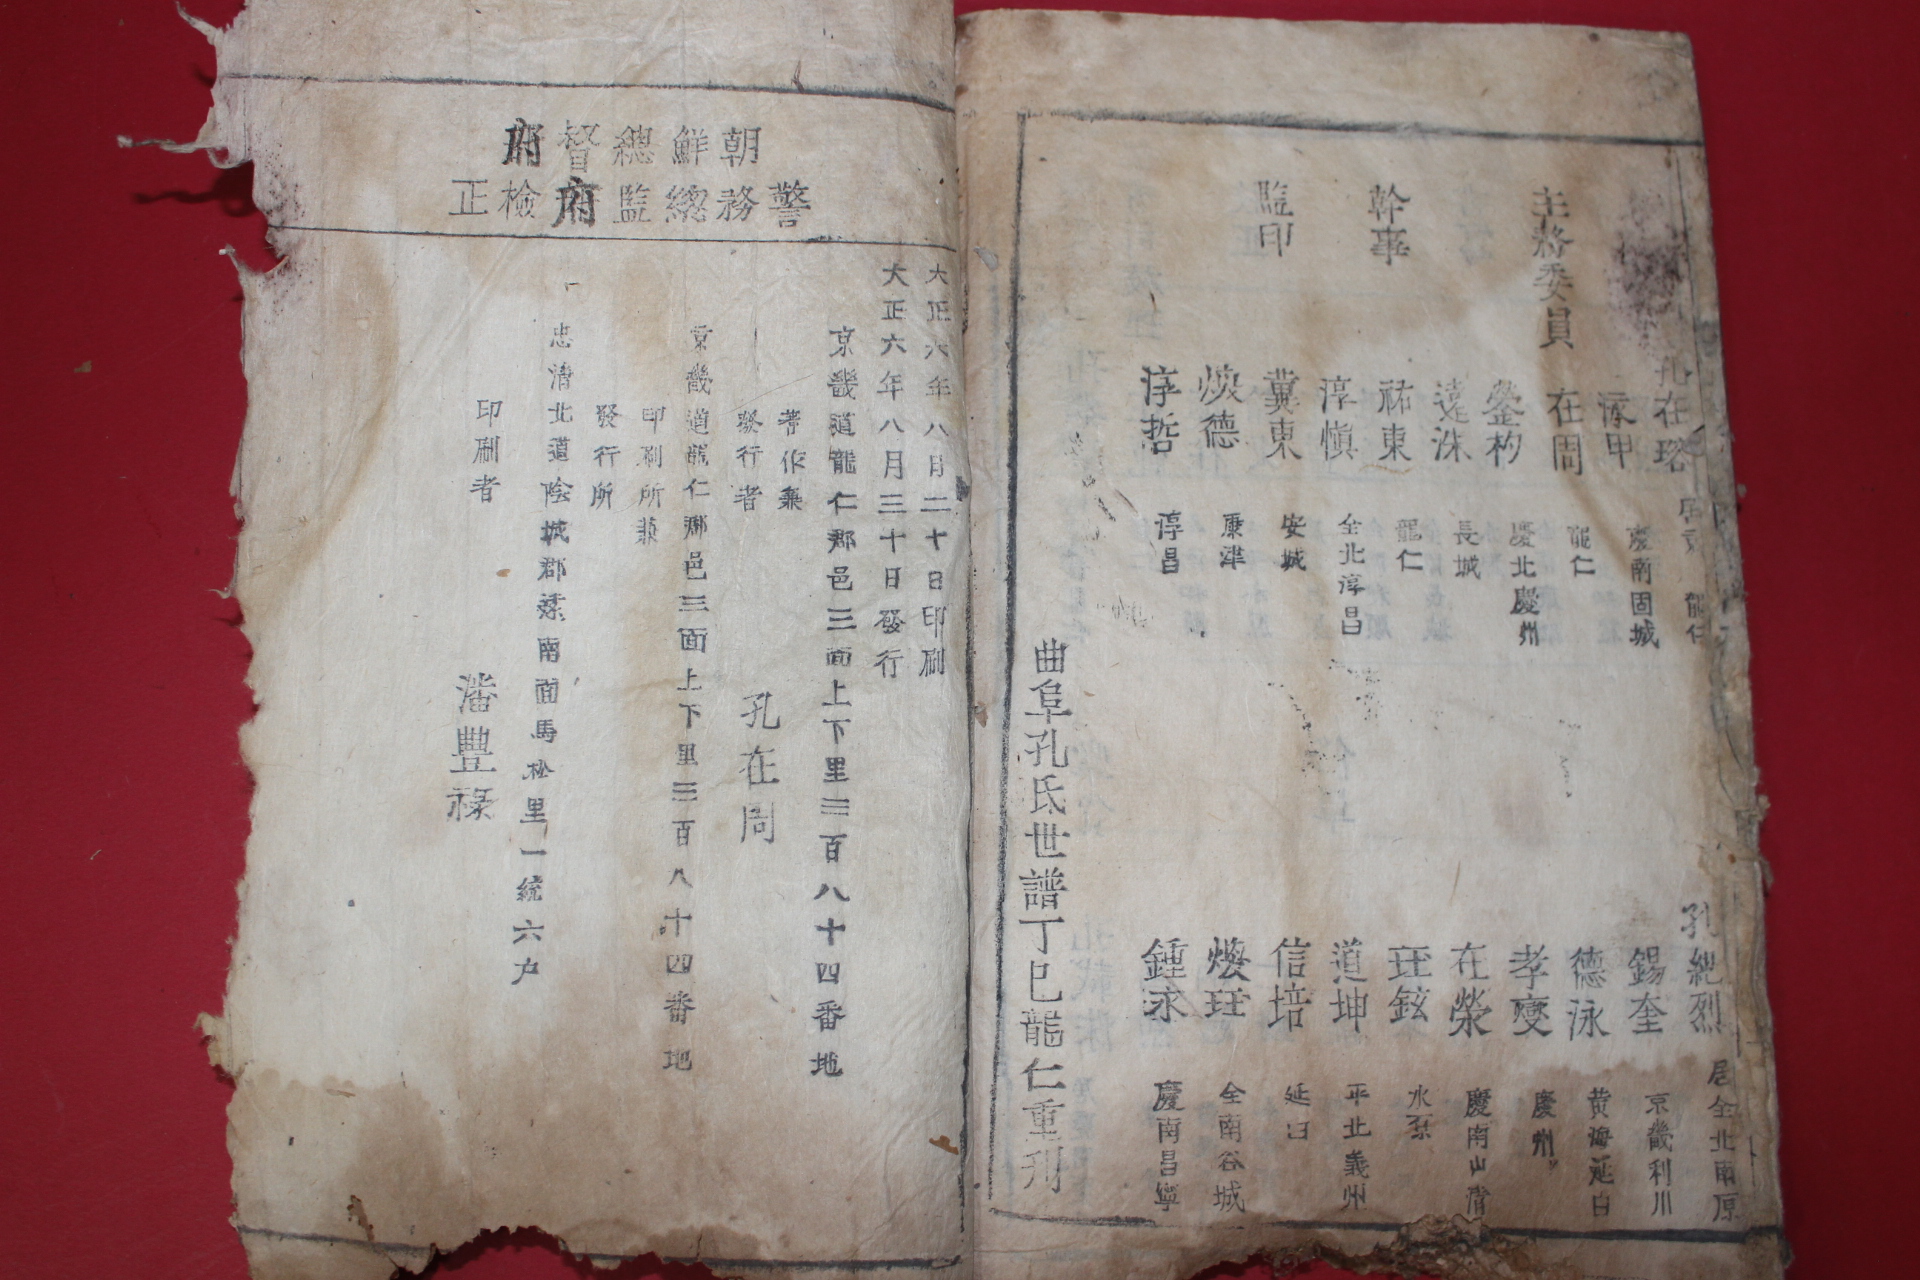 主務委員
孔在珞
慶南固城
在周
龍仁
慶北慶州
遠洙
長城
幹事
祐東
龍仁
淳愼
全北淳昌
冀東
安城
監印
煥德
康津
淳哲
淳昌
孔紀烈
居全北南原
錫奎
京畿利川
德泳
黄海延白
孝燮
慶州
在榮
慶南山清
鉉
道坤
平北義州
信培
延白
煥珏
全南谷城
鍾泳
慶南昌寧
曲阜孔氏世譜丁巳龍仁重刊
朝鮮總督府
警務總監府檢正
大正六年八月二十日印刷
大正六年八月三十日發行
京畿道龍仁郡邑三面上下里三百八十四番地
著作兼
發行者
孔在周
京畿道龍仁郡邑三面上下里三百八十四番地
印刷所兼
發行所
忠清北道陰城郡遠南面馬松里一統六户
印刷者
潘豐祿